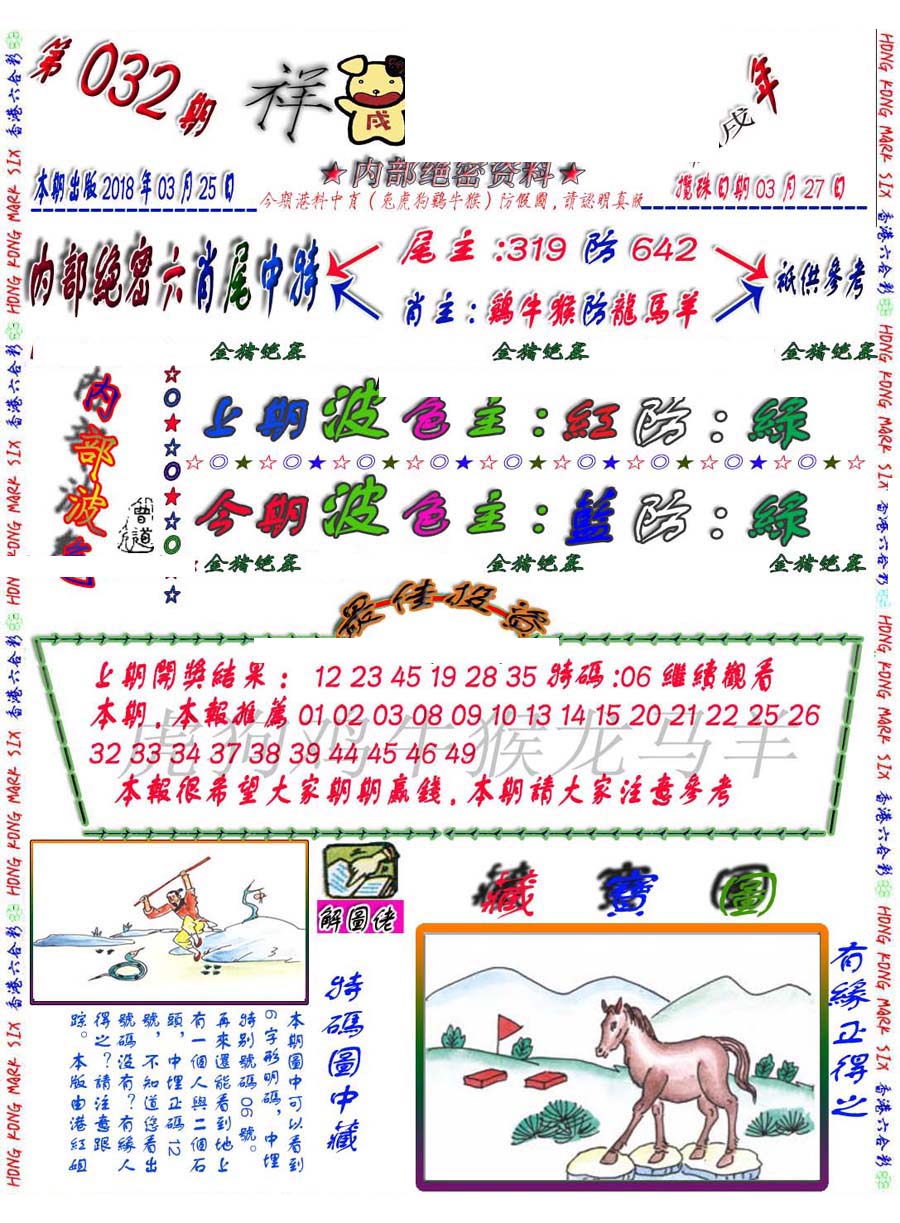 第032期
祥
戌
戌年
本期出版2018年03月25日
★内部绝密资料★
攪珠日期03月27日
今期港料中肖(兔虎狗鷄牛猴)防假圖,請認明真版
内部绝密六肖尾中特
尾主:319 防 642
肖主:鷄牛猴防龍馬羊
祇供參考
金猪绝密 金猪绝密 金猪绝密
内部波色
曾道
上期波色主:紅防:綠
☆◎★☆◎★☆◎★☆◎★☆◎★☆◎★☆◎★☆◎★☆◎★☆
今期波色主:藍防:綠
金猪绝密 金猪绝密 金猪绝密
最佳投
上期開獎結果: 12 23 45 19 28 35 特碼:06 繼續觀看
本期.本報推薦 01 02 03 08 09 10 13 14 15 20 21 22 25 26
32 33 34 37 38 39 44 45 46 49
虎狗鸡牛猴龙马羊
本報很希望大家期期贏錢.本期請大家注意參考
解圖佬
藏寶圖
中
特碼圖中藏
有緣正得之
本期圖中可以看到
6字形明碼,中埋
特别號碼06號。
再來還能看到地上
有一個人與二個石
頭,中埋正碼12
號,不知道您看出
號碼没有?有緣人
得之?請注意跟
踪。本版由港紅姐
香港六合彩 HONG KONG MARK SIX 香港六合彩 HONG KONG MARK SIX 香港六合彩 HONG KONG MARK SIX 香港六合彩 HONG KONG MARK SIX
HONG KONG MARK SIX 香港六合彩 HONG KONG MARK SIX 香港六合彩 HONG KONG MARK SIX 香港六合彩 HONG KONG MARK SIX 香港六合彩